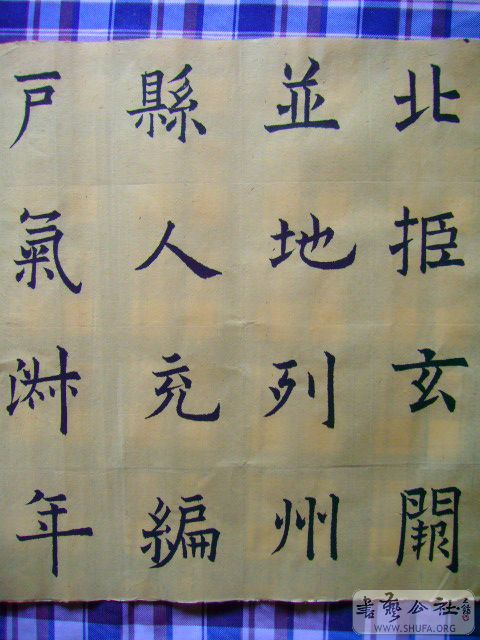 北拒玄闕
並地列州
縣人充編
戶氣淑年
書藝公社
WWW.SHUFA.ORG